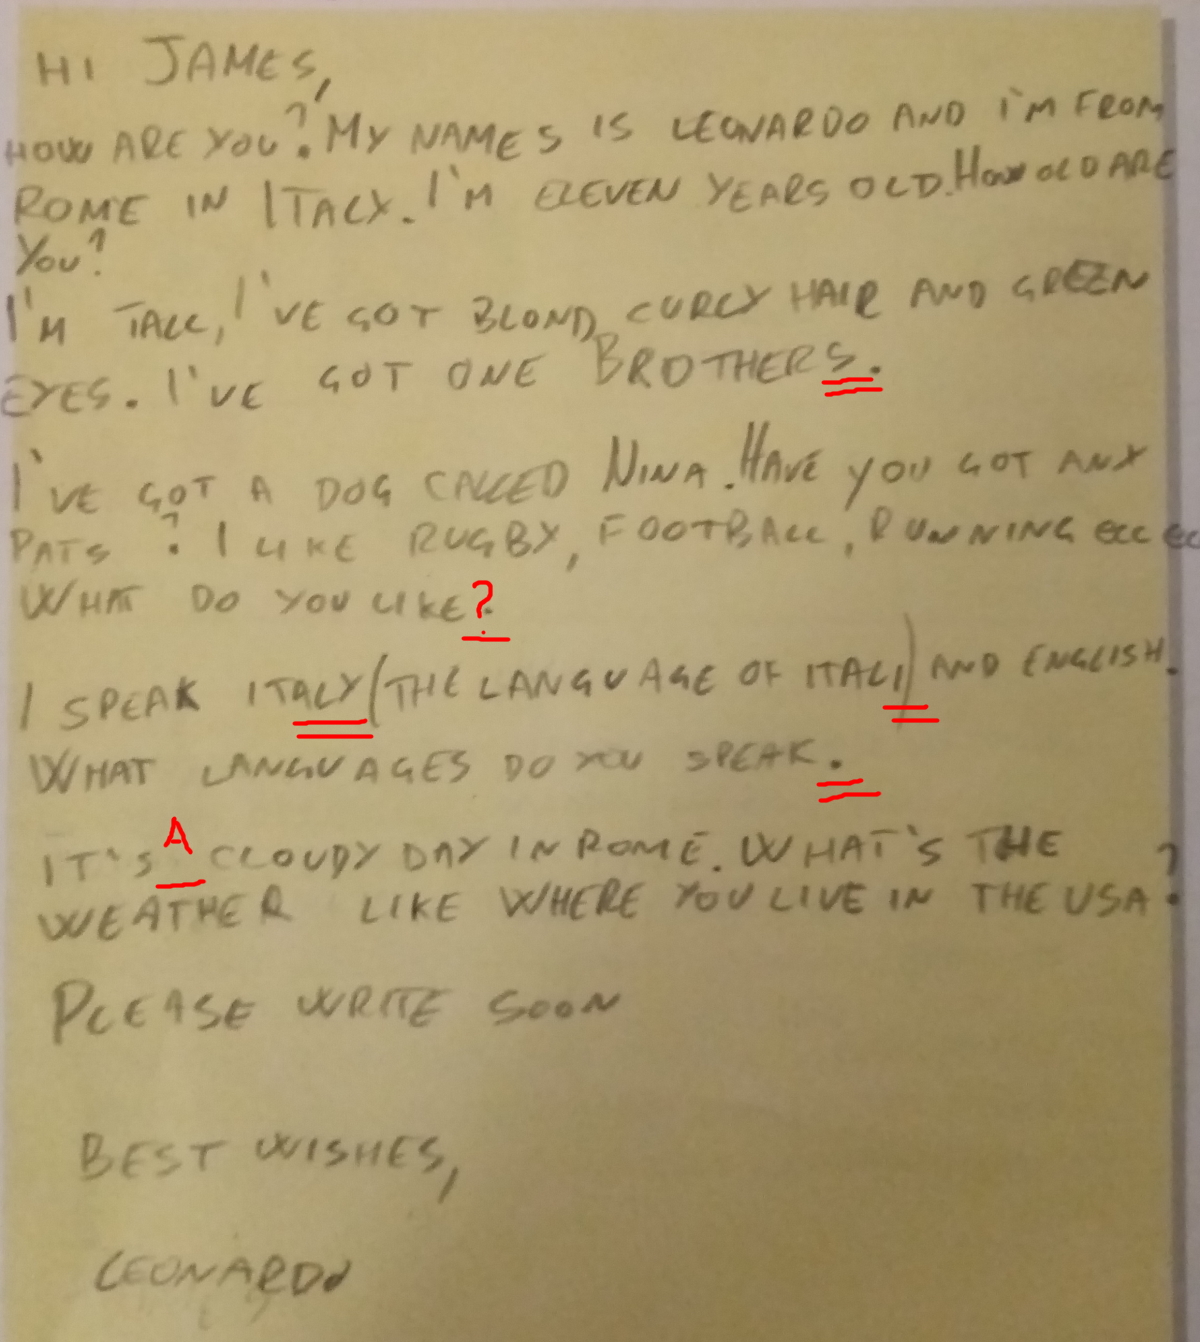 HI JAMES,
HOW ARE YOU? MY NAMES IS LEONARDO AND I'M FROM
ROME IN ITALY. I'M ELEVEN YEARS OLD. HOW OLD ARE
YOU?
I'M TALL, I'VE GOT BLOND, CURLY HAIR AND GREEN
EYES. I'VE GOT ONE BROTHERS.
I'VE GOT A DOG CALLED NINA. HAVE YOU GOT ANY
PATS? I LIKE RUGBY, FOOTBALL, RUNNING ECC ECC
WHAT DO YOU LIKE?
I SPEAK ITALY (THE LANGUAGE OF ITALI) AND ENGLISH.
WHAT LANGUAGES DO YOU SPEAK.
IT'S A CLOUDY DAY IN ROME. WHAT'S THE
WEATHER LIKE WHERE YOU LIVE IN THE USA?
PLEASE WRITE SOON
BEST WISHES,
LEONARDO